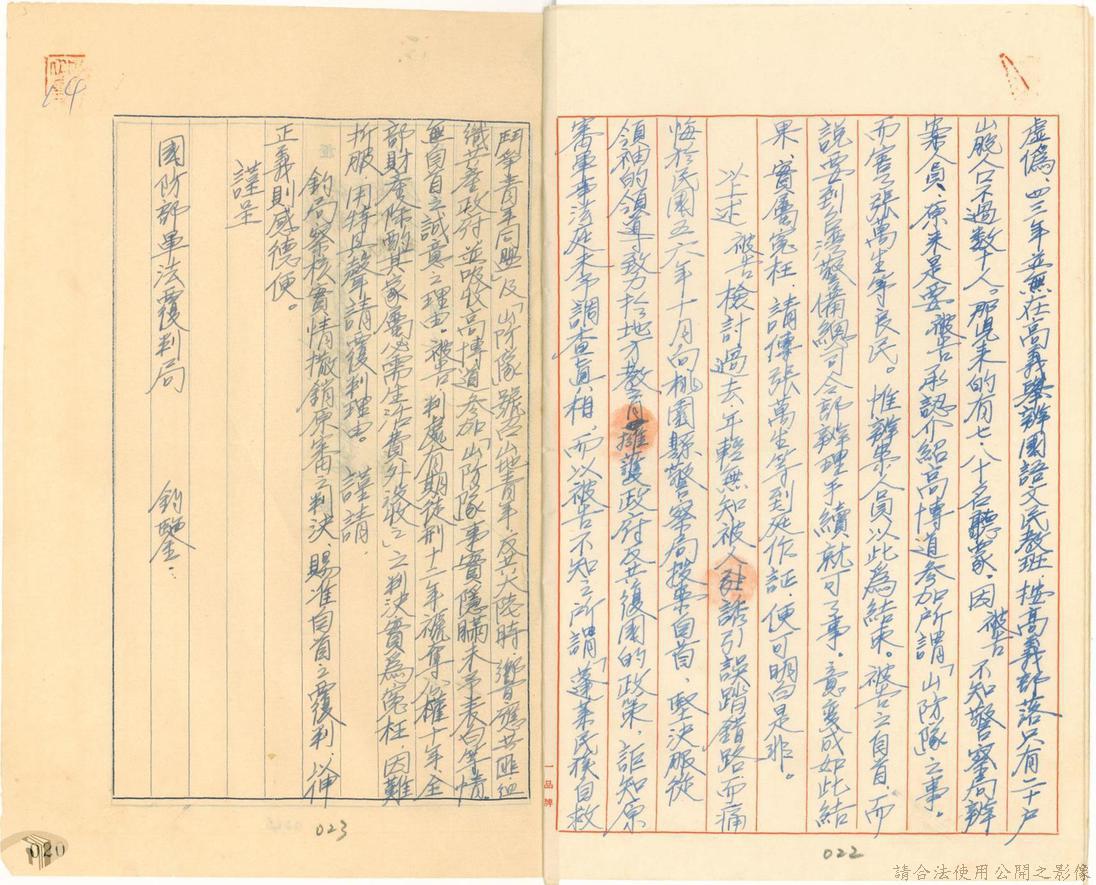 虛偽、四三年並無在高義舉辦國語文民教班、按高義部落只有二十戶
山胞合不過数十人。那見来的有七、八十名聽衆、因被告不知警察局辦
案人員、原来是要被告承認介紹高博道参加所謂「山防隊」之事。
而害之張萬生等良民。惟辦案人員以此為結束。被告之自首、而
說要到台灣警備總司令部辦理手續就可了事。意変成如此結
果、實屬冤枉、請傳張萬生等到庭作証、便可明白是非。
以上述被告檢討過去年輕無知被人引誤踏錯路而痛
悔於民國五六年十月向桃園縣警察局投案自首、堅決服從
領袖的領導致力於地方教育擁護政府反共復國的政策、詎知原
審軍事法庭未予調查真相、而以被告不知之所謂、「蓬萊民族自救
鬥爭青年同盟」及「山防隊」號召山地青年、反共大陸時響應共匪、組
織共產政付並吸收高博道参加「山防隊」事實隱瞞未予表白等情。
無自首之誠意之理由。被告判處有期徒刑十二年褫奪公權十年全
部財產除酌其家屬必需生活費外没收之之判決實為冤枉、因難
折服、用特具聲請覆判理由。謹請、
鈞局察核實情撤銷原審之判決、賜准自首之覆判、以伸
正義則感德便。
謹呈
國防部軍法覆判局　鈞鑒：
一品牌
023
022
020
請合法使用公開之影像